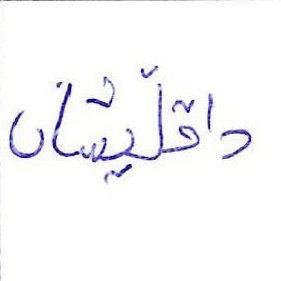 داقلّيشان